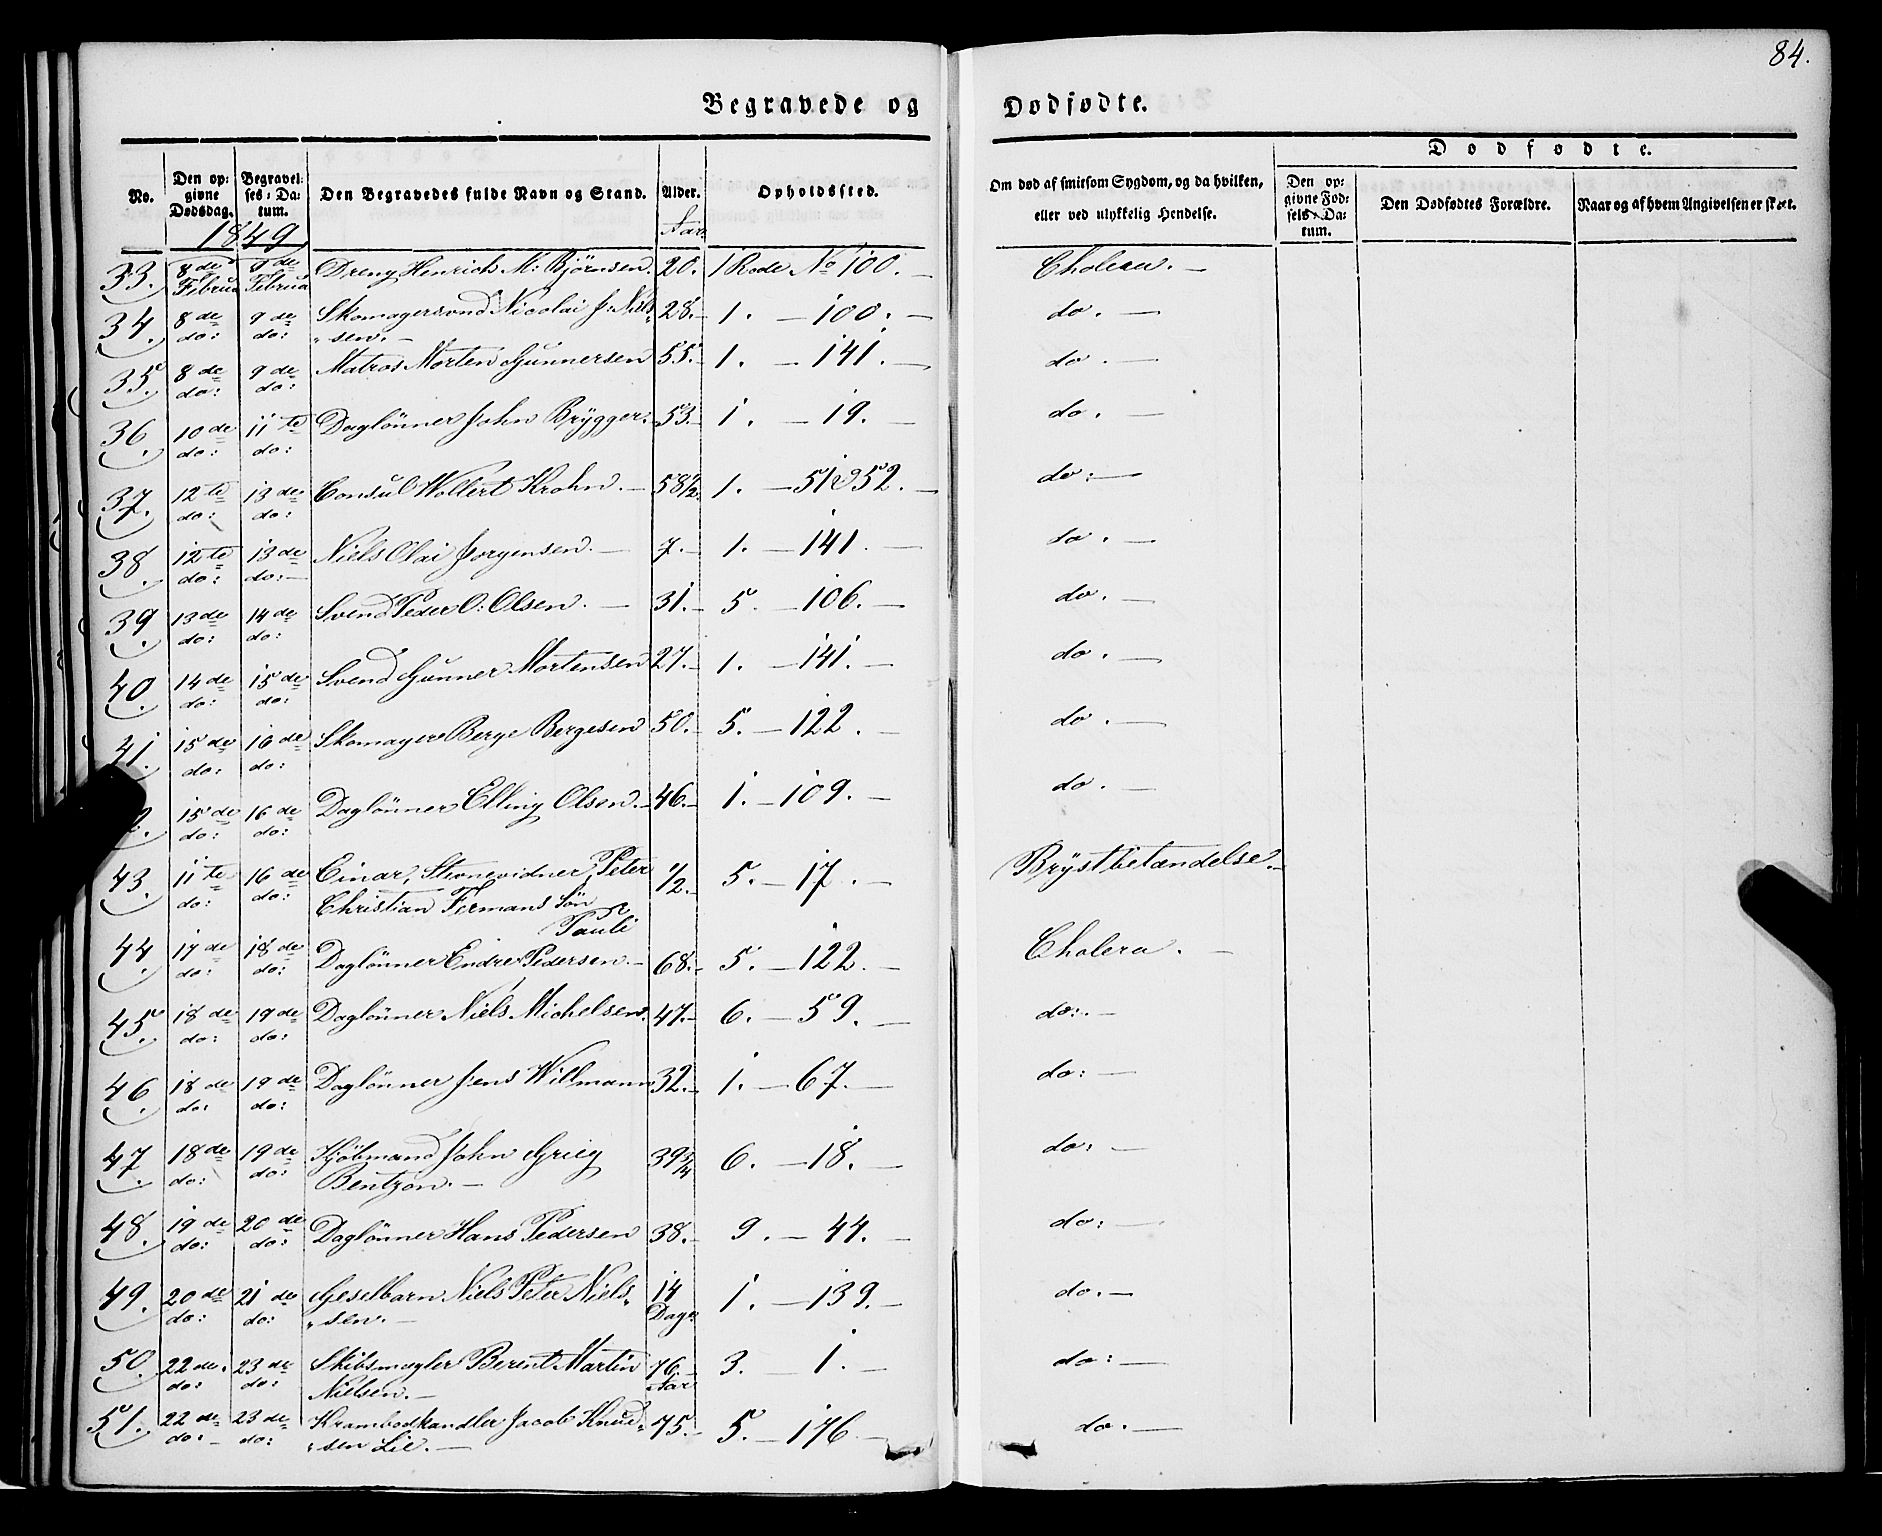 84.
Begravede og Dødfødte.
No. | Den opgivne Dødsdag. | Begravelses-Datum. | Den Begravedes fulde Navn og Stand. | Alder. | Opholdssted. | Om død af smitsom Sygdom, og da hvilken, eller ved ulykkelig Hendelse. | Dødfødte. | Den opgivne Fødsels-Datum. | Den Dødfødtes Forældre. | Naar og af hvem Angivelsen er skeet.
1849 | Aar.
33. | 8de Februar | 9de Februar | Dreng Henrich M: Björnsen. | 20. | 1 Rode No 100. | Cholera.
34. | 8de do: | 9de do: | Skomagersvend Nicolai J: Niels-
„sen. | 28. | 1. — 100. | do.
35. | 8de do: | 9de do: | Matros Morten Gunnersen | 55. | 1. — 141. | do.
36. | 10de do: | 11te do: | Daglönner John Brÿgger. | 53. | 1. — 19. | do.
37. | 12te do: | 13de do: | Consul Wollert Krohn. | 58½. | 1. — 51 & 52. | do:
38. | 12te do: | 13de do: | Niels Olai Jørgensen. | 7. | 1. — 141. | do.
39. | 13de do: | 14de do: | Svend Peder O: Olsen. | 31. | 5. — 106. | do.
40. | 14de do: | 15de do: | Svend Gunner Mortensen | 27. | 1. — 141. | do.
41. | 15de do: | 16de do: | Skomager Berge Bergesen | 50. | 5. — 122. | do.
2. | 15de do: | 16de do: | Daglönner Elling Olsen. | 46. | 1. — 109. | do.
43. | 11te do: | 16de do: | Einar, Stevnevidner Peter
Christian Fermans Sön
Pauli | ½. | 5. — 17. | Brÿstbetændelse.
44. | 17de do: | 18de do: | Daglönner Endre Pedersen. | 68. | 5. — 122. | Cholera.
45. | 18de do: | 19de do: | Daglönner Niels Michelsen. | 47. | 6. — 59. | do:
46. | 18de do: | 19de do: | Daglönner Jens Willmann | 32. | 1. — 67. | do:
47. | 18de do: | 19de do: | Kjöbmand John Grieg
Bentzon. | 39¾ | 6. — 18. | do:
48. | 19de do: | 20de do: | Daglönner Hans Pedersen | 38. | 9. — 44. | do:
49. | 20de do: | 21de do: | Geselbarn Niels Peter Niels„
„sen. | 14 Dage | 1. — 139. | do.
50. | 22de do: | 23de do: | Skibsmægler Berent Martin
Nielsen. | 76. Aar | 3. — 1. | do:
51. | 22de do: | 23de do: | Krambodhandler Jacob Knud„
„sen Lie. | 75. | 5. — 176 | do.